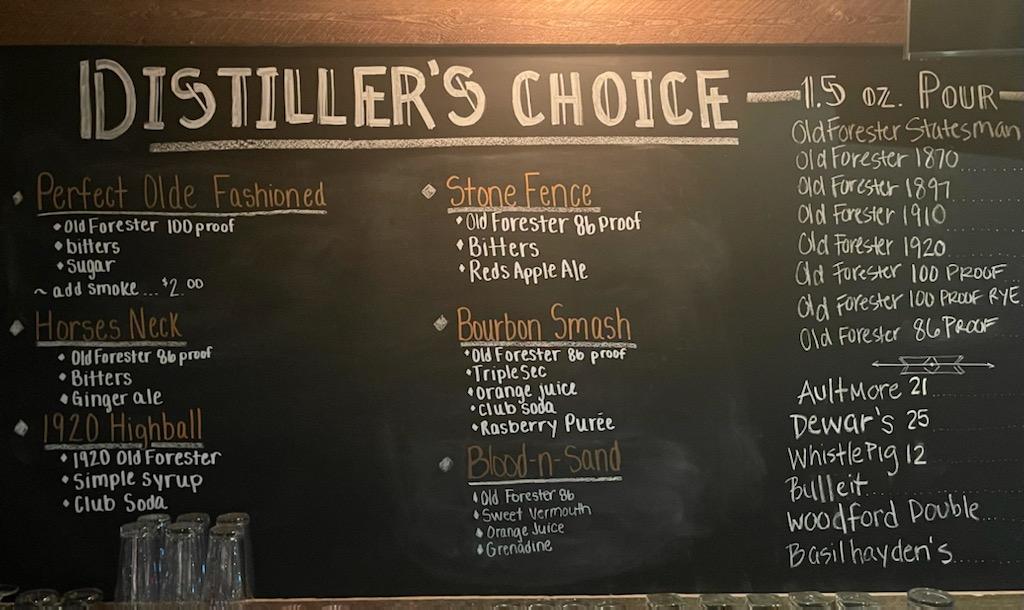 DISTILLER'S CHOICE
Perfect Olde Fashioned
Old Forester 100 proof
bitters
sugar
~ add smoke... $2.00
Horses Neck
Old Forester 86 proof
Bitters
Ginger ale
1920 Highball
1920 Old Forester
Simple syrup
Club Soda
Stone Fence
Old Forester 86 proof
Bitters
Reds Apple Ale
Bourbon Smash
Old Forester 86 proof
Triple Sec
orange juice
Club soda
Rasberry Purée
Blood-n-Sand
Old Forester 86
Sweet Vermouth
Orange Juice
Grenadine
1.5 oz. POUR
Old Forester Statesman
Old Forester 1870
Old Forester 1897
Old Forester 1910
Old Forester 1920
Old Forester 100 PROOF
Old Forester 100 PROOF RYE
Old Forester 86 PROOF
Aultmore 21
Dewar's 25
WhistlePig 12
Bulleit
Woodford Double
Basil hayden's